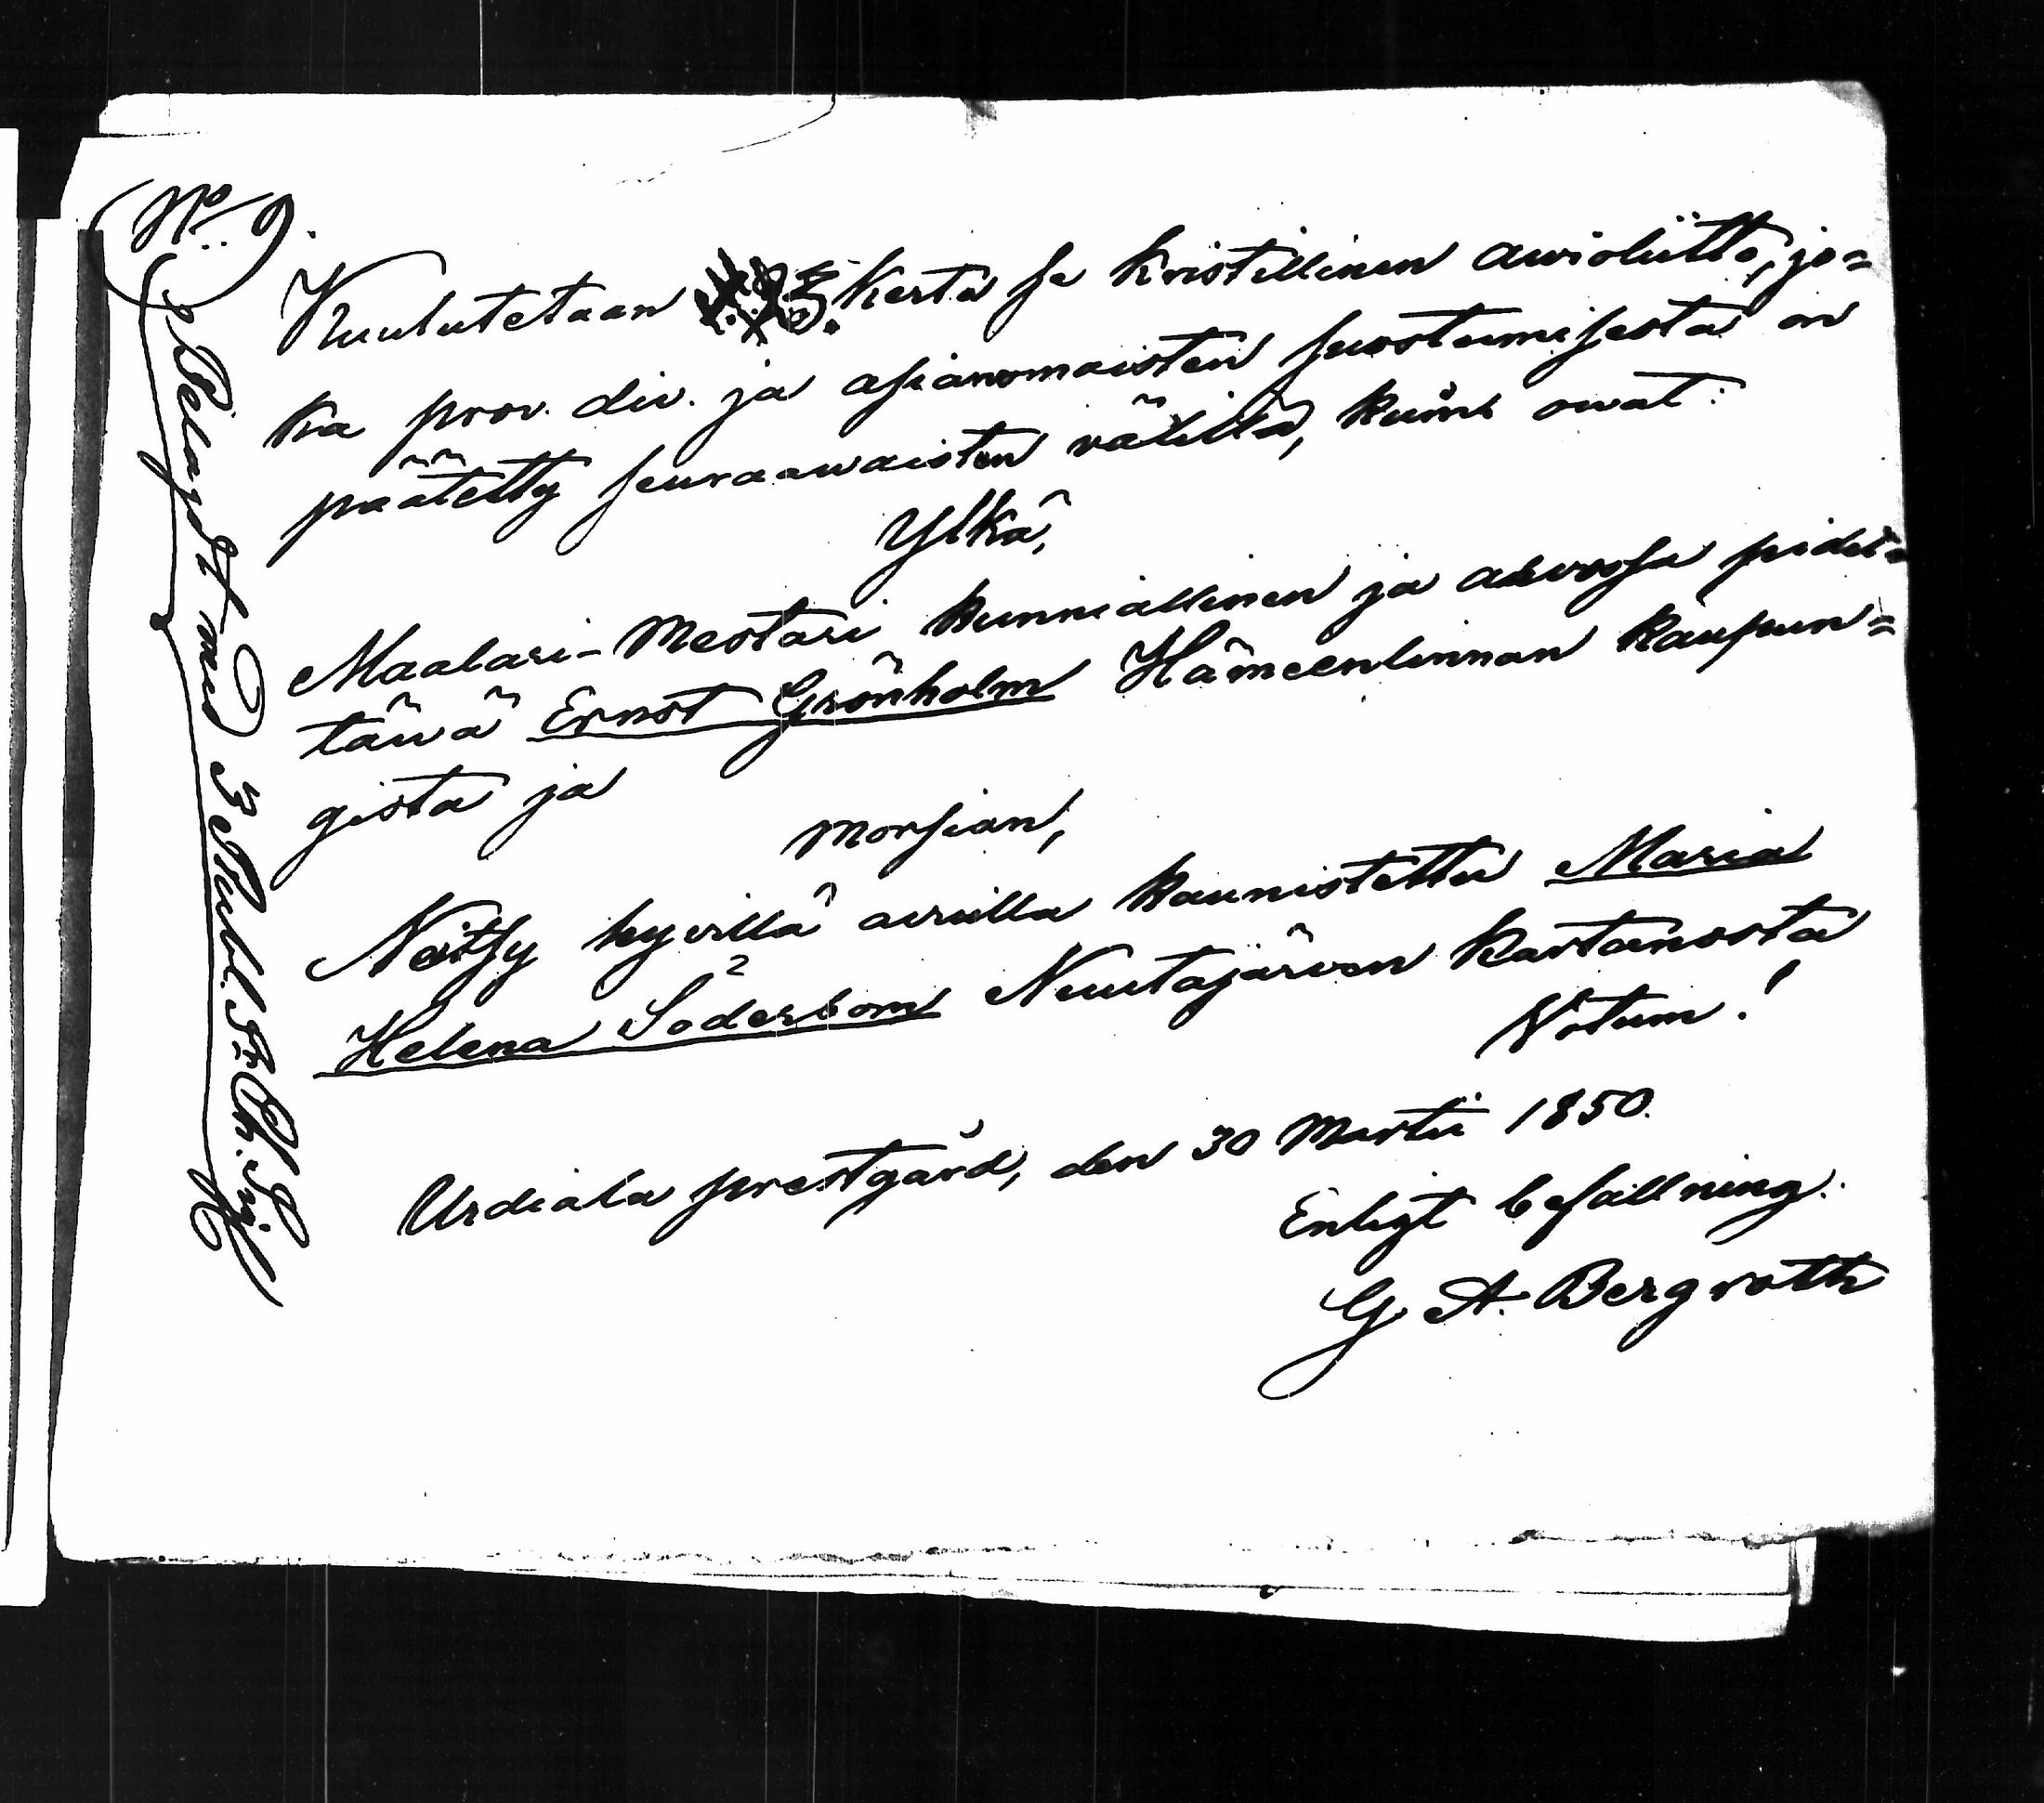 No. 9.
Kuulutetaan 3. kerta se kristillinen awioliitto, jo=
ka prov. div. ja asianomaisten suostumisesta on
päätetty seuraawaisten välillä, kuin owat:
Ylkä,
Maalari-Mestari kunniallinen ja arwossa pidet=
täwä Ernst Grönholm Hämeenlinnan kaupun=
gista ja
Morsian,
Neitsy hyvillä awuilla kaunistettu Maria
Helena Söderbom Nuutajärven kartanosta
Votum!
Urdiala prestgård, den 30 Martii 1850.
Enligt befallning.
G. A. Bergroth